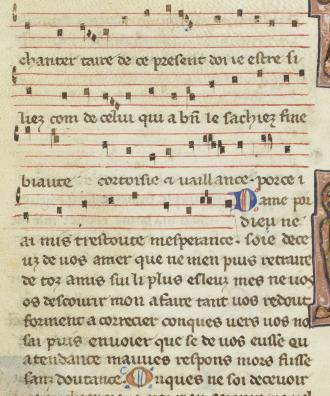 chanter taire de ce present doi ie estre si
liez com de celui qui a bn le sachiez fine
biaute cortoisie ⁊ vaillance. porce i
Dame por
dieu ne
ai mis trestoute mesperance. soie dece
uz de vos amer que ne men puis retraire
de toz amis sui li plus esleuz mes ne vos
os descouvrir mon afaire tant vos redout
forment a correcier conques vers vos no
sai puis envoier que se de vos eusse eu
atendance mauves respons mors fusse
sanz doutance. Onques ne soi decevoir